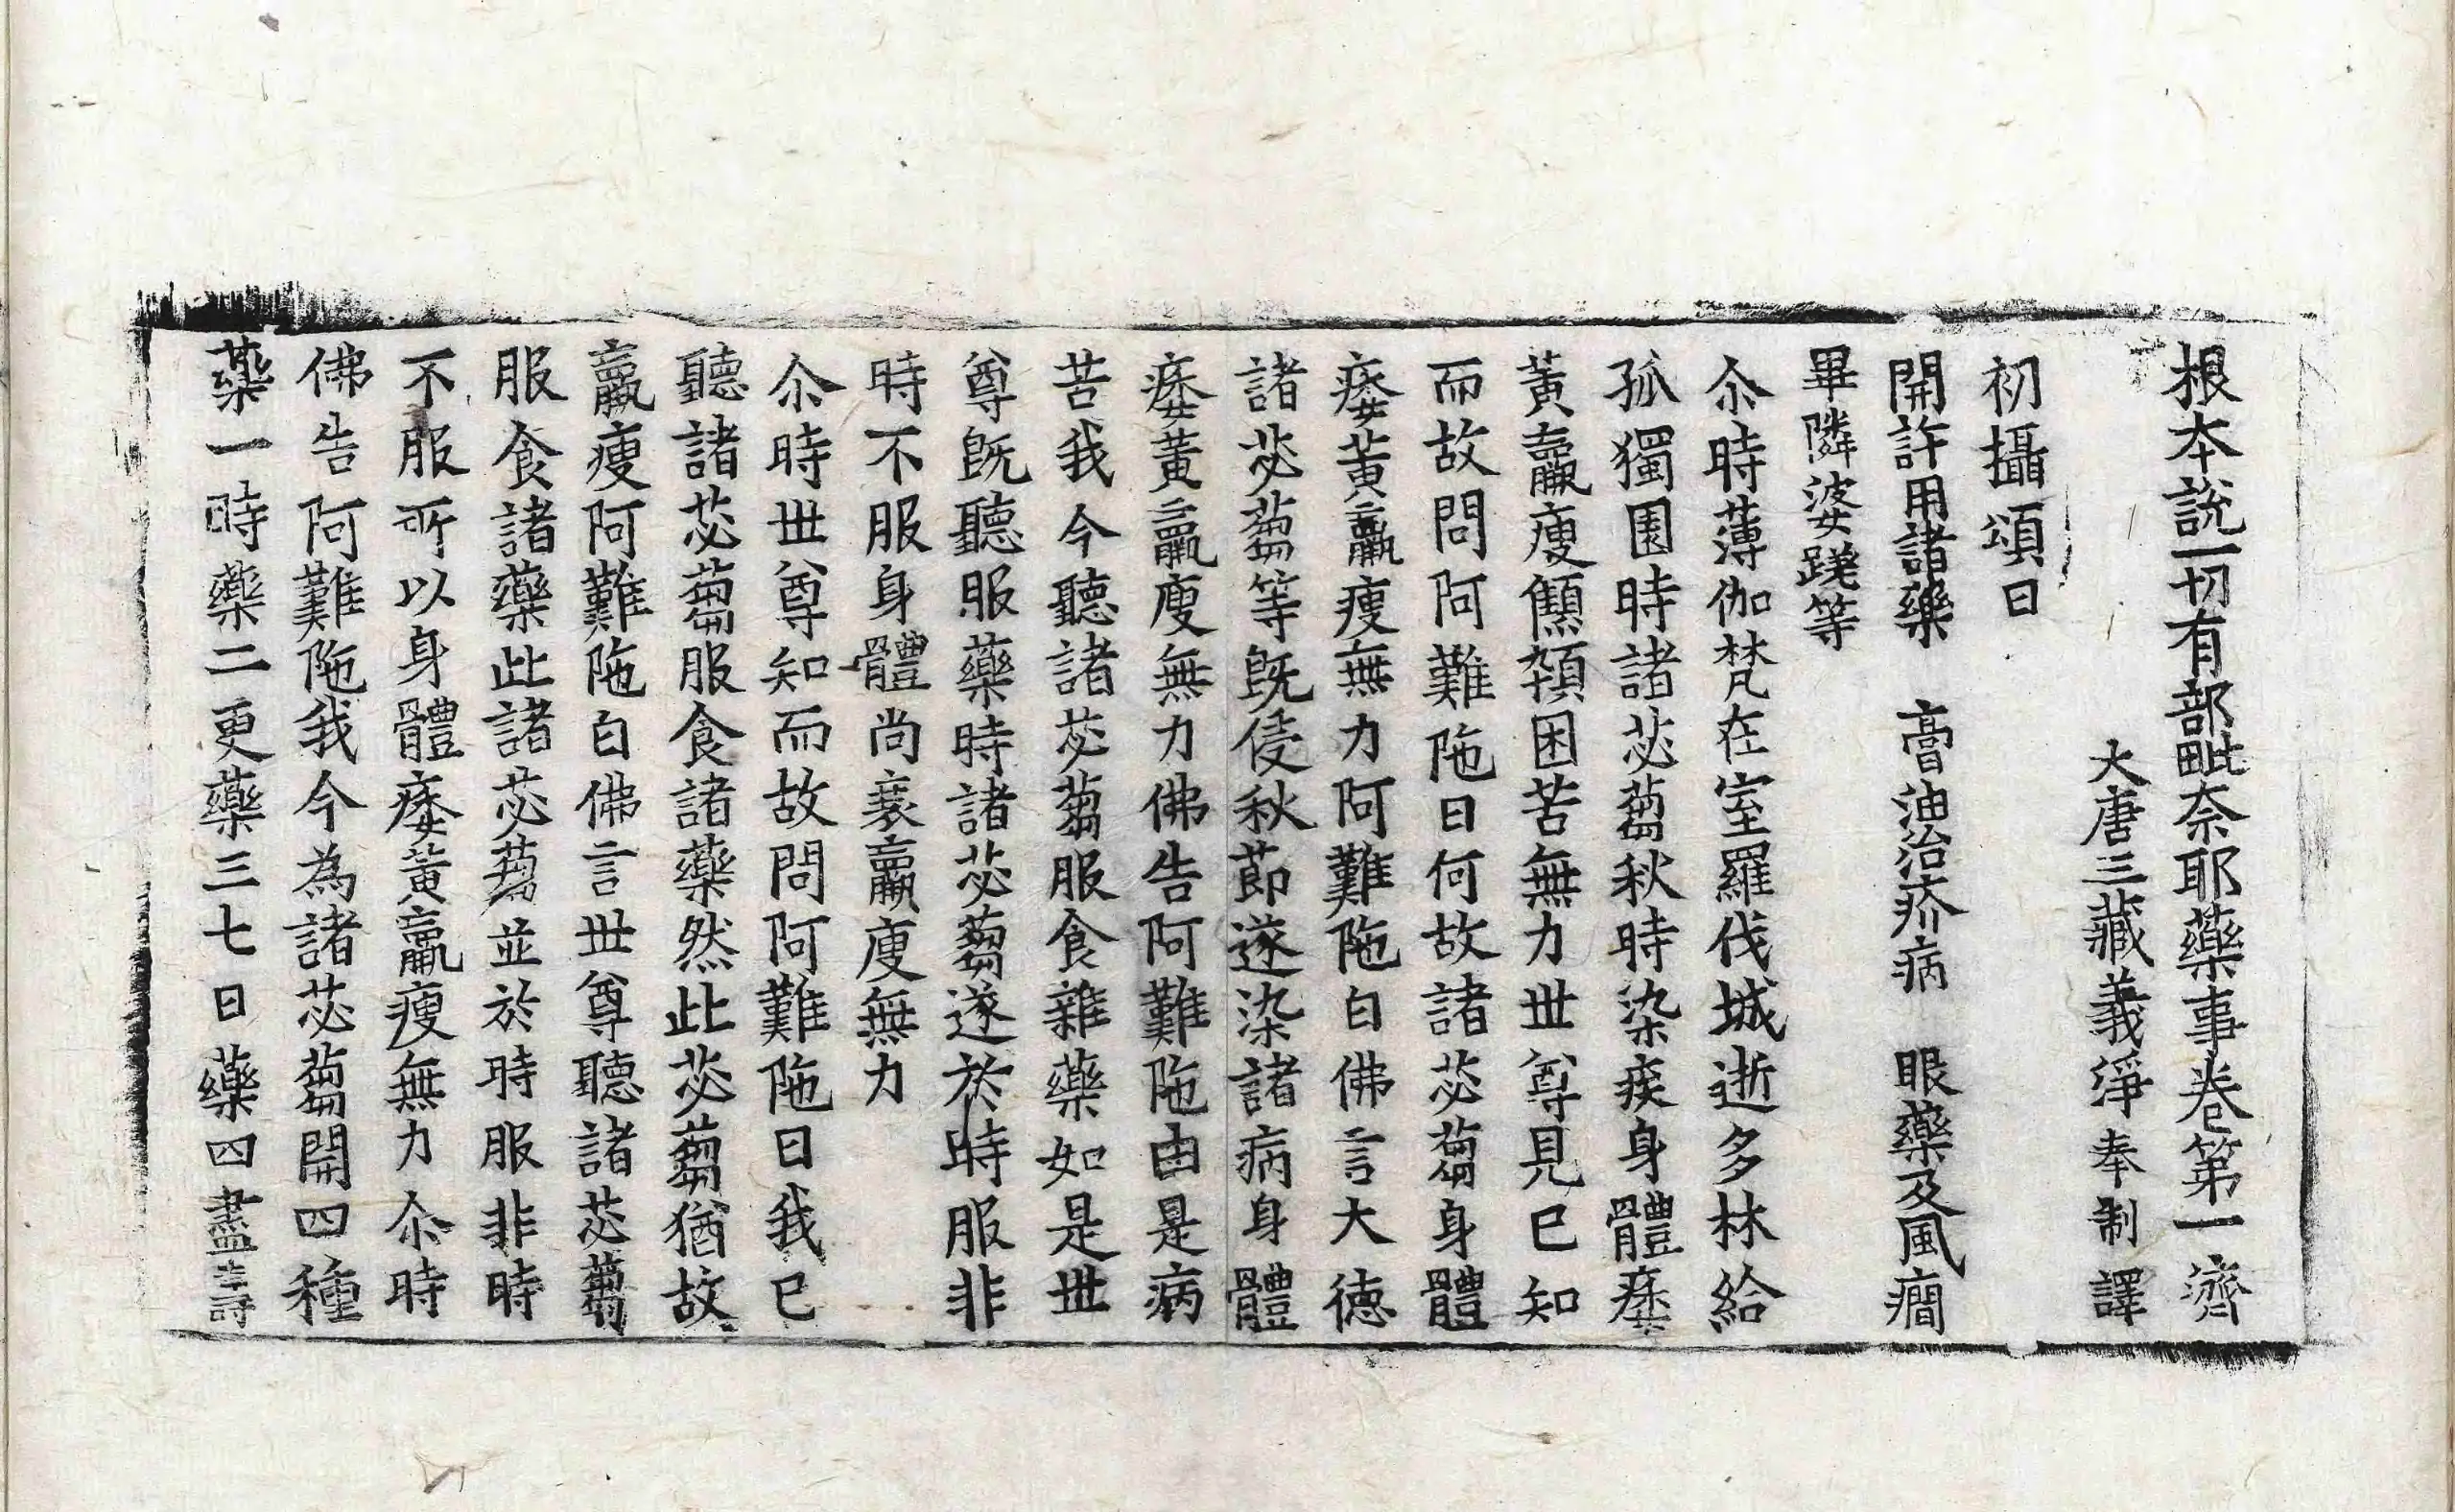 根本說一切有部毗奈耶藥事卷第一 濟
大唐三藏義淨奉制譯
初攝頌曰
開許用諸藥 膏油治疥病 眼藥及風癇
畢隣婆蹉等
尒時薄伽梵在室羅伐城逝多林給
孤獨園時諸苾蒭秋時染疾身體痿
黃羸瘦顦顇困苦無力世尊見已知
而故問阿難陁曰何故諸苾蒭身體
痿黃羸瘦無力阿難陁白佛言大德
諸苾蒭等旣侵秋節遂染諸病身體
痿黃羸瘦無力佛告阿難陁由是病
苦我今聽諸苾蒭服食雜藥如是世
尊旣聽服藥時諸苾蒭遂於時服非
時不服身體尚衰羸瘦無力
尒時世尊知而故問阿難陁曰我已
聽諸苾蒭服食諸藥然此苾蒭猶故
羸瘦阿難陁白佛言世尊聽諸苾蒭
服食諸藥此諸苾蒭並於時服非時
不服所以身體痿黃羸瘦無力尒時
佛告阿難陁我今為諸苾蒭開四種
藥一時藥二更藥三七日藥四盡壽